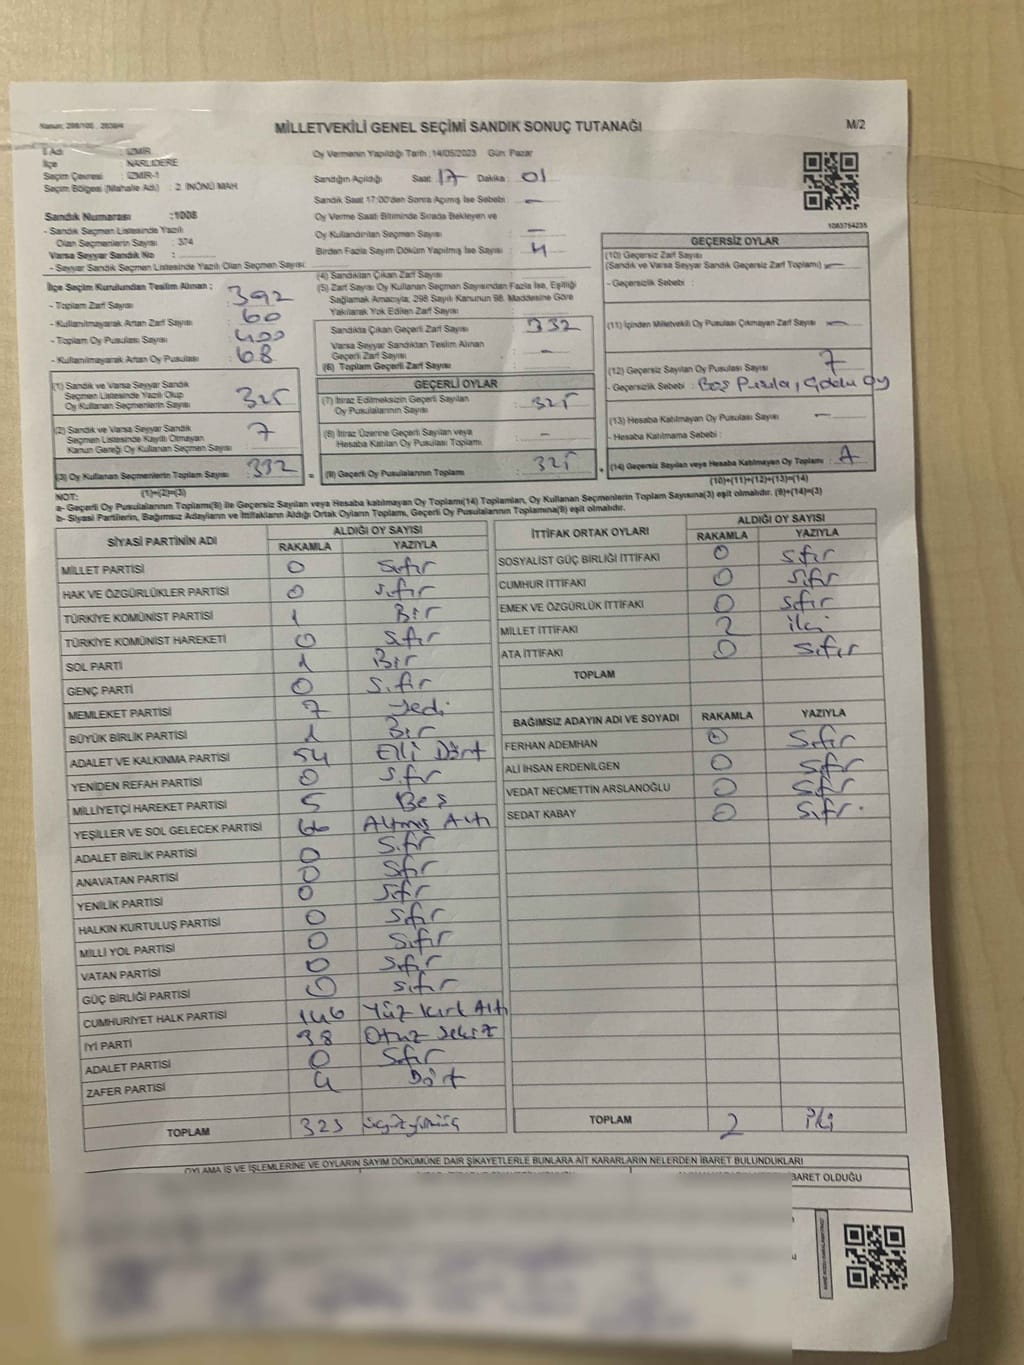 Kanun: 298/105 , 2839/4
MİLLETVEKİLİ GENEL SEÇİMİ SANDIK SONUÇ TUTANAĞI
M/2
İl Adı : İZMİR
İlçe : NARLIDERE
Seçim Çevresi : İZMİR-1
Seçim Bölgesi (Mahalle Adı) : 2. İNÖNÜ MAH
Oy Vermenin Yapıldığı Tarih :14/05/2023 Gün: Pazar
Sandığın Açıldığı Saat: 17 Dakika : 01
Sandık Saat 17:00'den Sonra Açımış İse Sebebi : —
Sandık Numarası :1008
- Sandık Seçmen Listesinde Yazılı
Olan Seçmenlerin Sayısı : 374
Varsa Seyyar Sandık No :
- Seyyar Sandık Seçmen Listesinde Yazılı Olan Seçmen Sayısı:
Oy Verme Saati Bitiminde Sırada Bekleyen ve
Oy Kullandırılan Seçmen Sayısı : —
Birden Fazla Sayım Döküm Yapılmış İse Sayısı : 4
1083764235
İlçe Seçim Kurulundan Teslim Alınan ;
- Toplam Zarf Sayısı : 392
- Kullanılmayarak Artan Zarf Sayısı : 60
- Toplam Oy Pusulası Sayısı : 400
- Kullanılmayarak Artan Oy Pusulası : 68
(4) Sandıktan Çıkan Zarf Sayısı :
(5) Zarf Sayısı Oy Kullanan Seçmen Sayısından Fazla İse, Eşitliği
Sağlamak Amacıyla, 298 Sayılı Kanunun 98. Maddesine Göre
Yakılarak Yok Edilen Zarf Sayısı :
Sandıkta Çıkan Geçerli Zarf Sayısı : 332
Varsa Seyyar Sandıktan Teslim Alınan
Geçerli Zarf Sayısı : —
(6) Toplam Geçerli Zarf Sayısı :
(1) Sandık ve Varsa Seyyar Sandık
Seçmen Listesinde Yazılı Olup
Oy Kullanan Seçmenlerin Sayısı : 325
(2) Sandık ve Varsa Seyyar Sandık
Seçmen Listesinde Kayıtlı Olmayan
Kanun Gereği Oy Kullanan Seçmen Sayısı : 7
(3) Oy Kullanan Seçmenlerin Toplam Sayısı : 332
(1)+(2)=(3)
GEÇERLİ OYLAR
(7) İtiraz Edilmeksizin Geçerli Sayılan
Oy Pusulalarının Sayısı : 325
(8) İtiraz Üzerine Geçerli Sayılan veya
Hesaba Katılan Oy Pusulası Toplamı : —
(9) Geçerli Oy Pusulalarının Toplamı : 325
GEÇERSİZ OYLAR
(10) Geçersiz Zarf Sayısı
(Sandık ve Varsa Seyyar Sandık Geçersiz Zarf Toplamı) —
- Geçersizlik Sebebi :
(11) İçinden Milletvekili Oy Pusulası Çıkmayan Zarf Sayısı : —
(12) Geçersiz Sayılan Oy Pusulası Sayısı : 7
- Geçersizlik Sebebi : Boş Pusula,
(13) Hesaba Katılmayan Oy Pusulası Sayısı : —
- Hesaba Katılmama Sebebi :
(14) Geçersiz Sayılan veya Hesaba Katılmayan Oy Toplamı :
(10)+(11)+(12)+(13)=(14)
NOT:
a- Geçerli Oy Pusulalarının Toplamı(9) ile Geçersiz Sayılan veya Hesaba katılmayan Oy Toplamı(14) Toplamları, Oy Kullanan Seçmenlerin Toplam Sayısına(3) eşit olmalıdır. (9)+(14)=(3)
b- Siyasi Partilerin, Bağımsız Adayların ve İttifakların Aldığı Ortak Oyların Toplamı, Geçerli Oy Pusulalarının Toplamına(9) eşit olmalıdır.
SİYASİ PARTİNİN ADI ALDIĞI OY SAYISI
RAKAMLA YAZIYLA
MİLLET PARTİSİ 0 Sıfır
HAK VE ÖZGÜRLÜKLER PARTİSİ 0 Sıfır
TÜRKİYE KOMÜNİST PARTİSİ 1 Bir
TÜRKİYE KOMÜNİST HAREKETİ 0 Sıfır
SOL PARTİ 1 Bir
GENÇ PARTİ 0 Sıfır
MEMLEKET PARTİSİ 7 Yedi
BÜYÜK BİRLİK PARTİSİ 1 Bir
ADALET VE KALKINMA PARTİSİ 54 Elli Dört
YENİDEN REFAH PARTİSİ 0 Sıfır
MİLLİYETÇİ HAREKET PARTİSİ 5 Beş
YEŞİLLER VE SOL GELECEK PARTİSİ 66 Altmış Altı
ADALET BİRLİK PARTİSİ 0 Sıfır
ANAVATAN PARTİSİ 0 Sıfır
YENİLİK PARTİSİ 0 Sıfır
HALKIN KURTULUŞ PARTİSİ 0 Sıfır
MİLLİ YOL PARTİSİ 0 Sıfır
VATAN PARTİSİ 0 Sıfır
GÜÇ BİRLİĞİ PARTİSİ 0 Sıfır
CUMHURİYET HALK PARTİSİ 146 Yüz Kırk Altı
İYİ PARTİ 38 Otuz Sekiz
ADALET PARTİSİ 0 Sıfır
ZAFER PARTİSİ 4 Dört
TOPLAM 323 üçyüzyirmiüç
İTTİFAK ORTAK OYLARI ALDIĞI OY SAYISI
RAKAMLA YAZIYLA
SOSYALİST GÜÇ BİRLİĞİ İTTİFAKI 0 Sıfır
CUMHUR İTTİFAKI 0 Sıfır
EMEK VE ÖZGÜRLÜK İTTİFAKI 0 Sıfır
MİLLET İTTİFAKI 2 iki
ATA İTTİFAKI 0 Sıfır
TOPLAM
BAĞIMSIZ ADAYIN ADI VE SOYADI RAKAMLA YAZIYLA
FERHAN ADEMHAN 0 Sıfır
ALİ İHSAN ERDENİLGEN 0 Sıfır
VEDAT NECMETTİN ARSLANOĞLU 0 Sıfır
SEDAT KABAY 0 Sıfır.
TOPLAM 2 iki
OYLAMA İŞ VE İŞLEMLERİNE VE OYLARIN SAYIM DÖKÜMÜNE DAİR ŞİKAYETLERLE BUNLARA AİT KARARLARIN NELERDEN İBARET BULUNDUKLARI
İBARET OLDUĞU